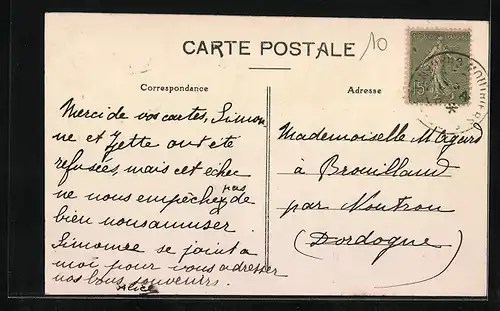 CARTE POSTALE
10
Correspondance
Merci de vos cartes, Simon
ne et Zette ont été
refusées, mais cet échec
ne nous empêche pas de
bien nous amuser.
Simonne se joint à
moi pour vous adresser
nos bons souvenirs.
Alice
Adresse
Mademoiselle
à Brouilland
par Nontron
(Dordogne)
15